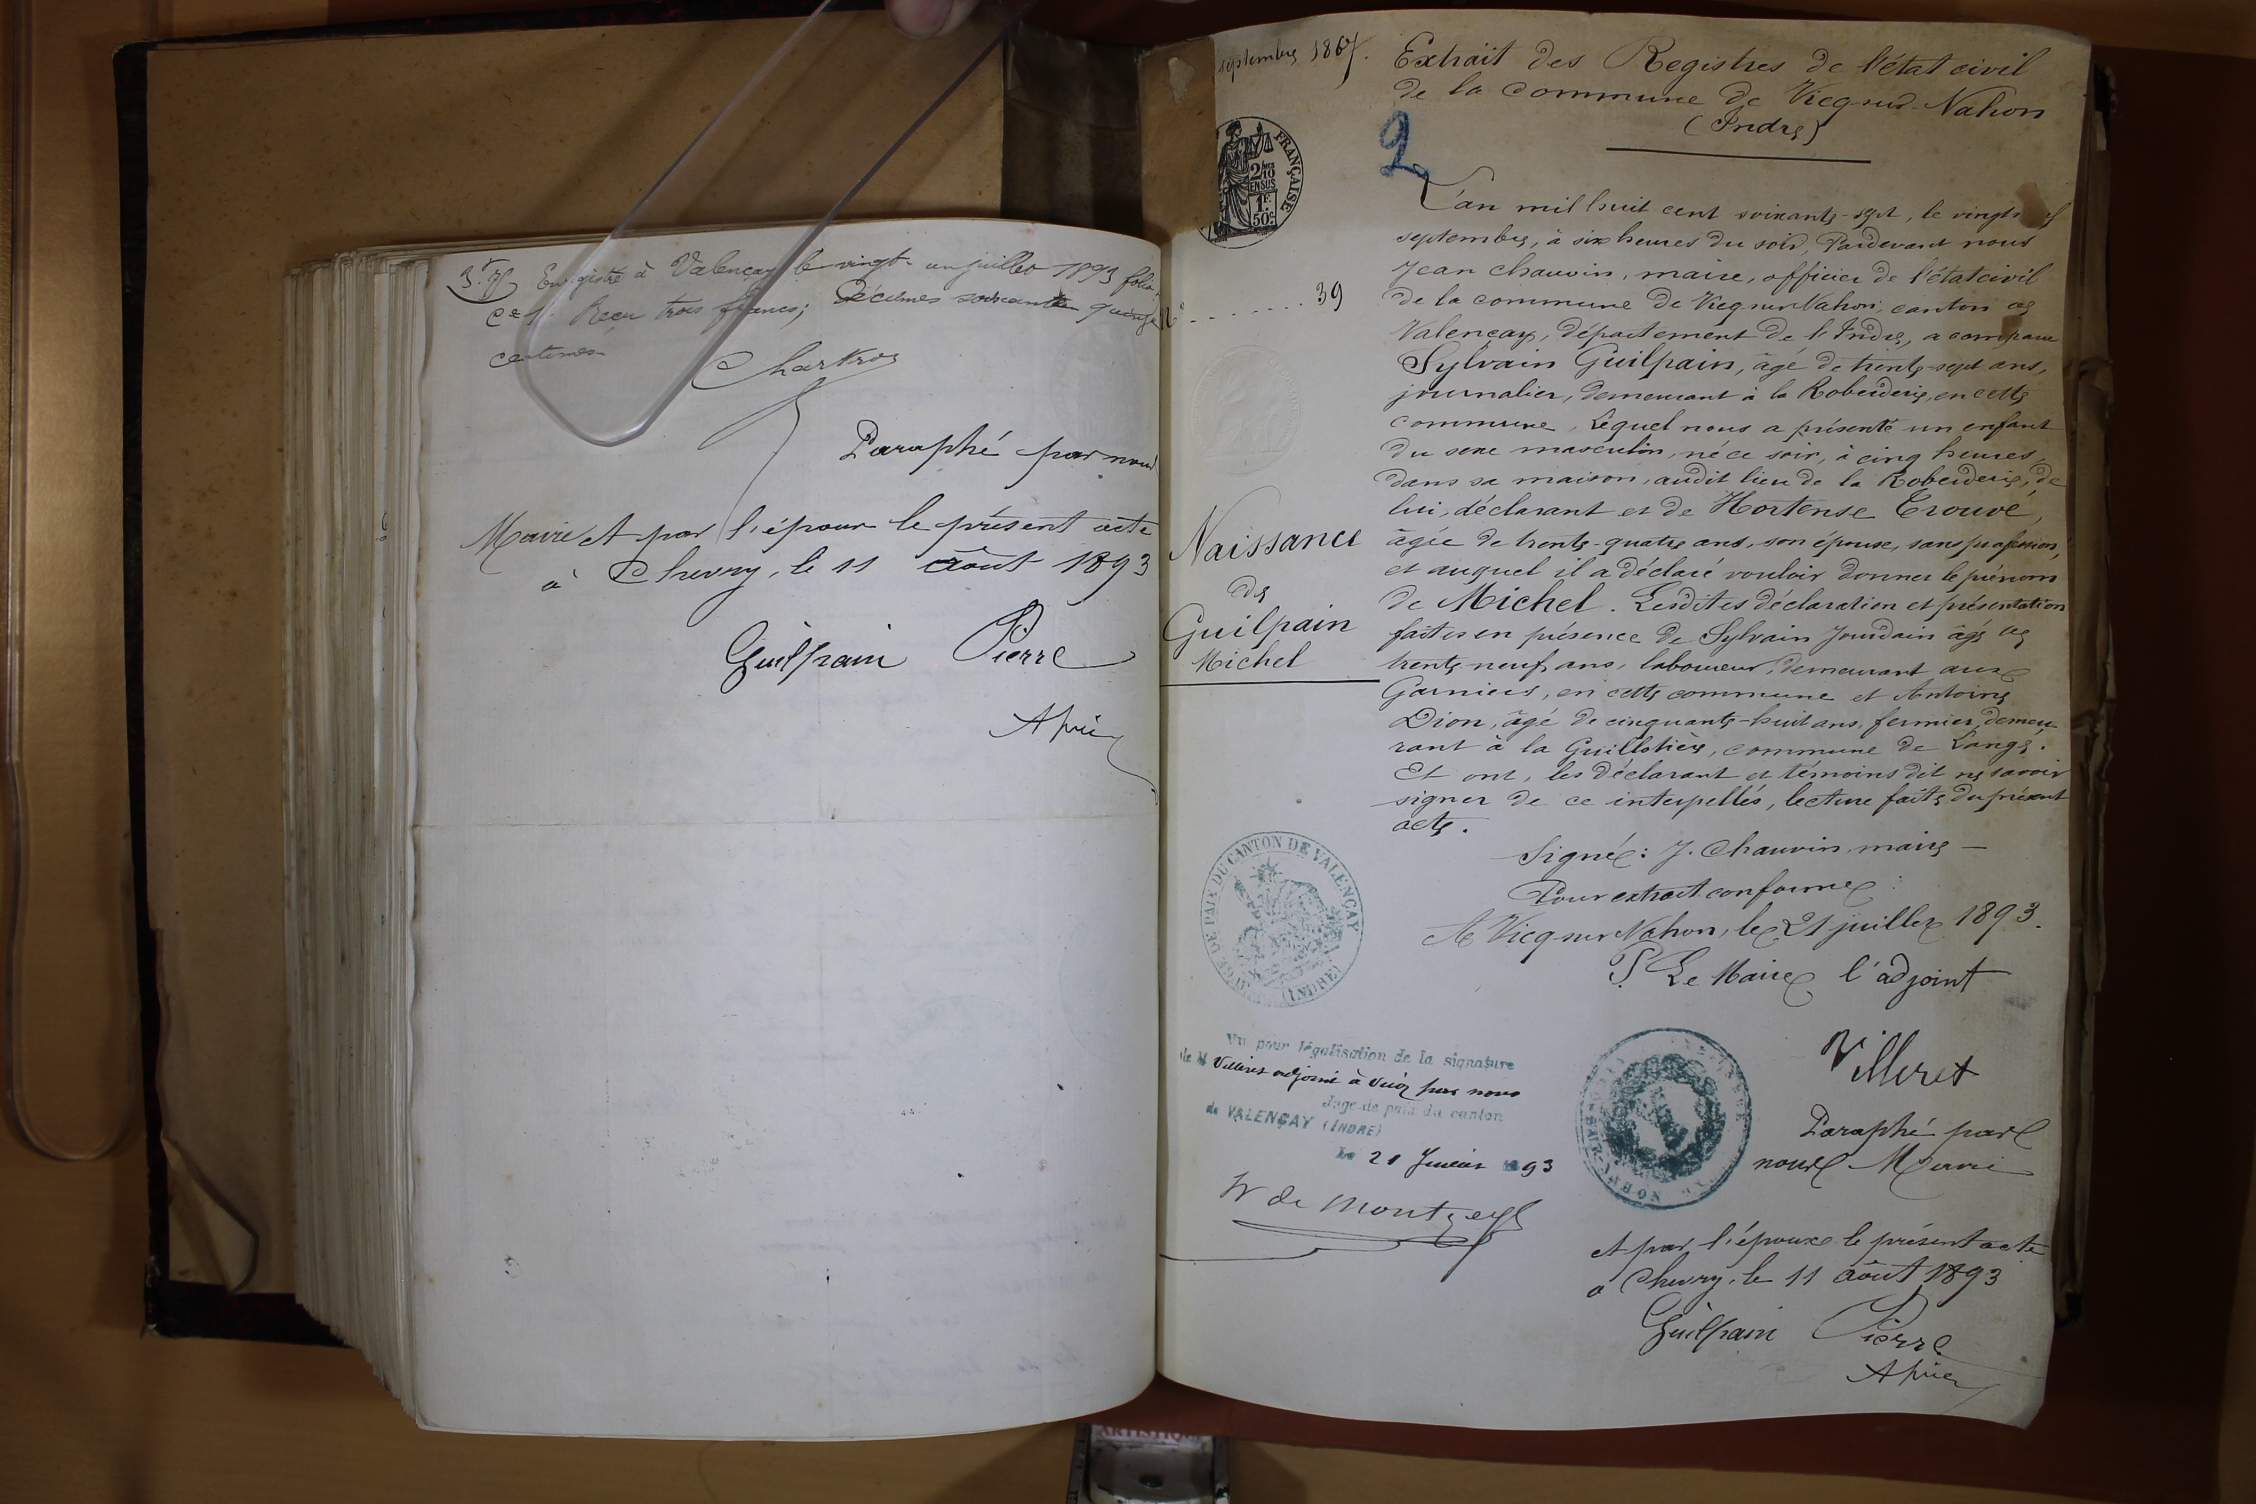 3f 75 Enregistré à Valençay le vingt un juillet 1893 folio
ce Reçu trois francs; Décimes soixante quinze
centimes
Paraphé par nous
Maire et par l'époux le présent acte
à Chevry, le 11 août 1893
Guilpain Pierre
septembre 1867.
FRANÇAISE
2/10
EN SUS
1F.
50c
N° ....... 39
Naissance
de
Guilpain
Michel
JUGE DE PAIX DU CANTON DE VALENÇAY
(INDRE)
Vu pour légalisation de la signature
de M Villeret adjoint à Vicq par nous
Juge de paix du canton
de VALENÇAY (INDRE)
Le 21 Juillet 1893
2
Extrait des Registres de l'état civil
de la commune de Vicq-sur-Nahon
(Indre)
L'an mil huit cent soixante-sept, le vingt
septembre, à six heures du soir, Pardevant nous
Jean Chauvin, maire, officier de l'état civil
de la commune de Vicq-sur-Nahon, canton de
Valençay, département de l'Indre, a comparu
Sylvain Guilpain, âgé de trente-sept ans,
journalier, demeurant à la Roberderie, en cette
commune, Lequel nous a présenté un enfant
du sexe masculin, né ce soir, à cinq heures,
dans sa maison, audit lieu de la Roberderie, de
lui, déclarant et de Hortense Trouvé,
âgée de trente-quatre ans, son épouse, sans profession,
et auquel il a déclaré vouloir donner le prénom
de Michel. Lesdites déclaration et présentation
faites en présence de Sylvain Jourdain âgé de
trente-neuf ans, laboureur, demeurant aux
Garniers, en cette commune et Antoine
Dion, âgé de cinquante-huit ans, fermier, demeu-
rant à la Guillotière, commune de Langé.
Et ont, les déclarant et témoins dit ne savoir
signer de ce interpellés, lecture faite du présent
acte.
Signé: J. Chauvin maire —
Pour extrait conforme:
A Vicq-sur-Nahon, le 21 juillet 1893.
P. Le Maire l'adjoint
Villeret
Paraphé par
nous Maire
et par l'époux le présent acte
à Chevry, le 11 août 1893
Guilpain Pierre